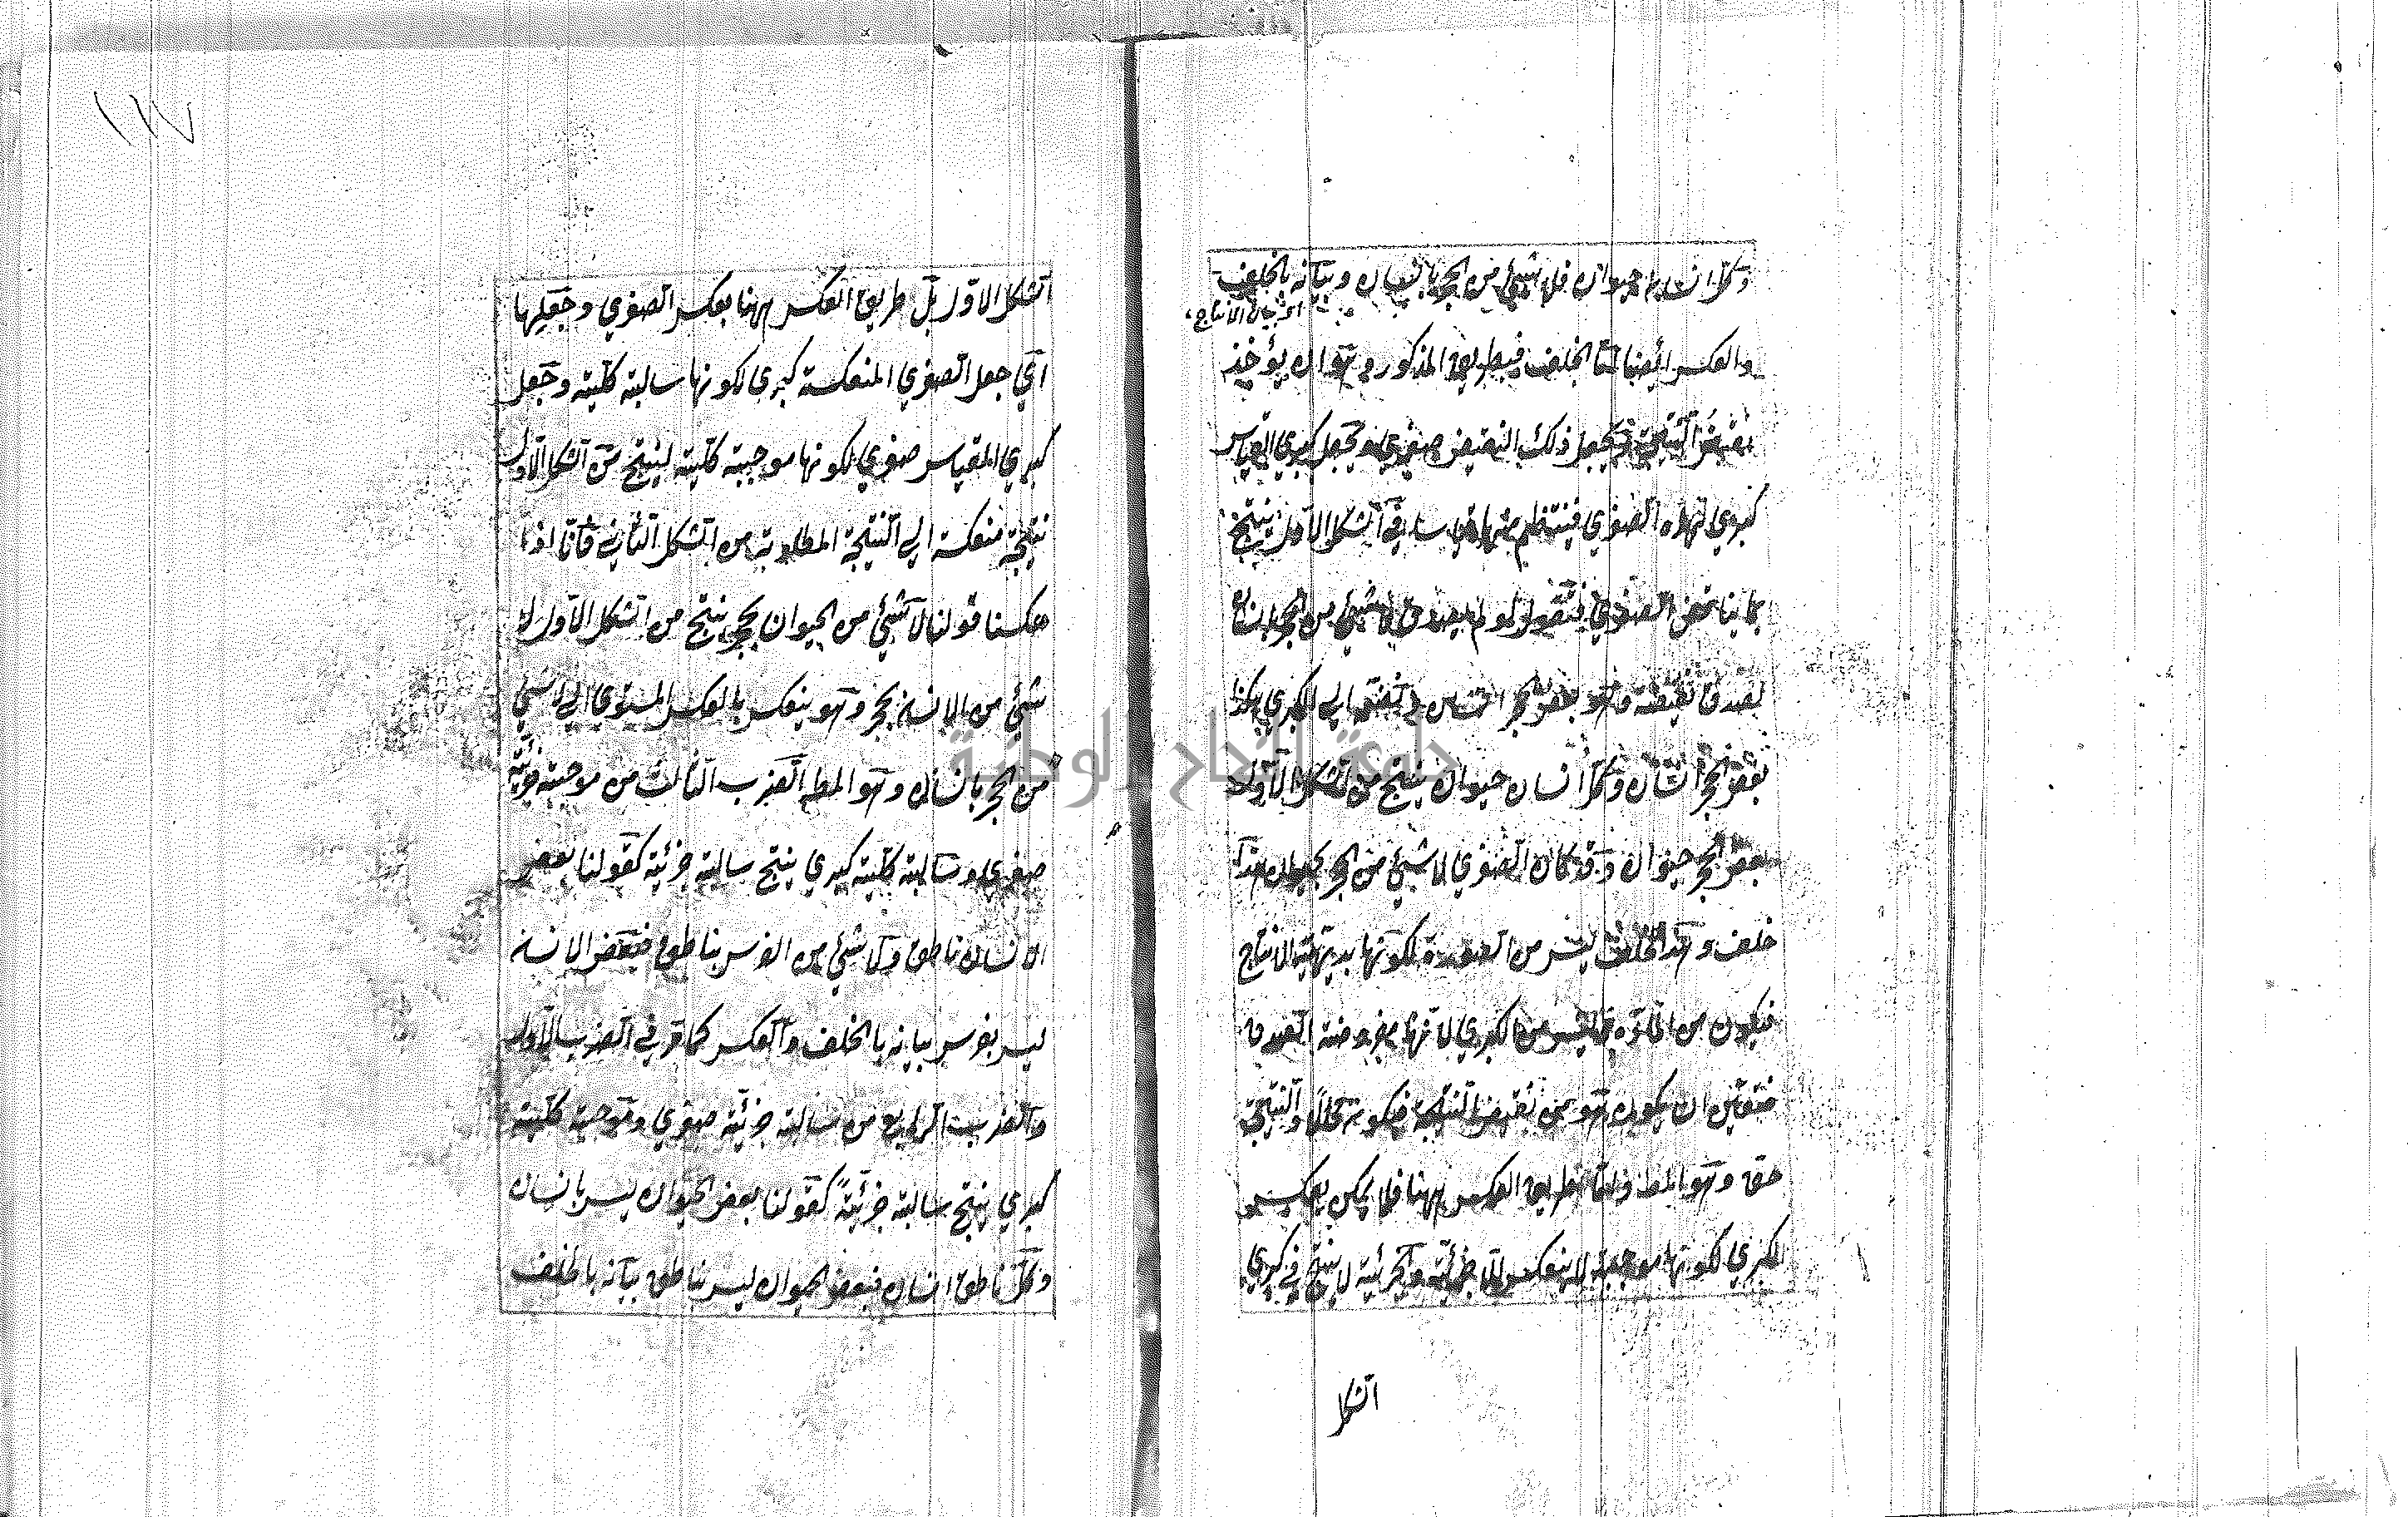 وكل انسان حيوان فلا شيئ من الحجر بانسان وبيانه بالخلف
اى بيان الانتاج
والعكس ايضا امّا الخلف فبطريق المذكور وهو ان يؤخذ
نقيض النتيجة فيجعل ذلك النقيض صغرى ويجعل كبرى القياس
كبرى لهذه الصغرى فينتظم منهما قياس في الشكل الاول ينتج
بما يناقض الصغرى فنقول لو لم يصدق لا شيئ من الحجر بانسان
لصدق نقيضه وهو بعض الحجر انسان فنضمه الى الكبرى هكذا
بعض الحجر انسان وكل انسان حيوان ينتج من الشكل الاول
بعض الحجر حيوان وقد كان الصغرى لا شيئ من الحجر بحيوان هذا
خلف وهذا الخلف ليس من الصورة لكونها بديهية الانتاج
فيكون من المادة وليس من الكبرى لانها مفروضة الصدق
فتعين ان يكون هو من نقيض النتيجة فيكون محالا والنتيجة
حق وهو المط وامّا طريق العكس ههنا فلا يمكن بعكس
الكبرى لكونها موجبة لا ينعكس الا جزئية والجزئية لا ينتج في كبرى
الشكل
١١٧
الشكل الاول بل طريق العكس ههنا بعكس الصغرى وجعلها
اى جعل الصغرى المنعكسة كبرى لكونها سالبة كلية وجعل
كبرى القياس صغرى لكونها موجبة كلية لينتج من الشكل الاول
نتيجة منعكسة الى النتيجة المطلوبة من الشكل الثاني فانا اذا
عكسنا قولنا لا شيئ من الحيوان بحجر ينتج من الشكل الاول لا
شيئ من الانسان بحجر وهو ينعكس بالعكس المستوى الى لا شيئ
من الحجر بانسان وهو المط الضرب الثالث من موجبة جزئية
صغرى وسالبة كلية كبرى ينتج سالبة جزئية كقولنا بعض
الانسان ناطق ولا شيئ من الفرس بناطق فبعض الانسان
ليس بفرس بيانه بالخلف والعكس كما مر في الضرب الاول
والضرب الرابع من سالبة جزئية صغرى وموجبة كلية
كبرى ينتج سالبة جزئية كقولنا بعض الحيوان ليس بانسان
وكل ناطق انسان فبعض الحيوان ليس بناطق بيانه بالخلف
جامعة النجاح الوطنية